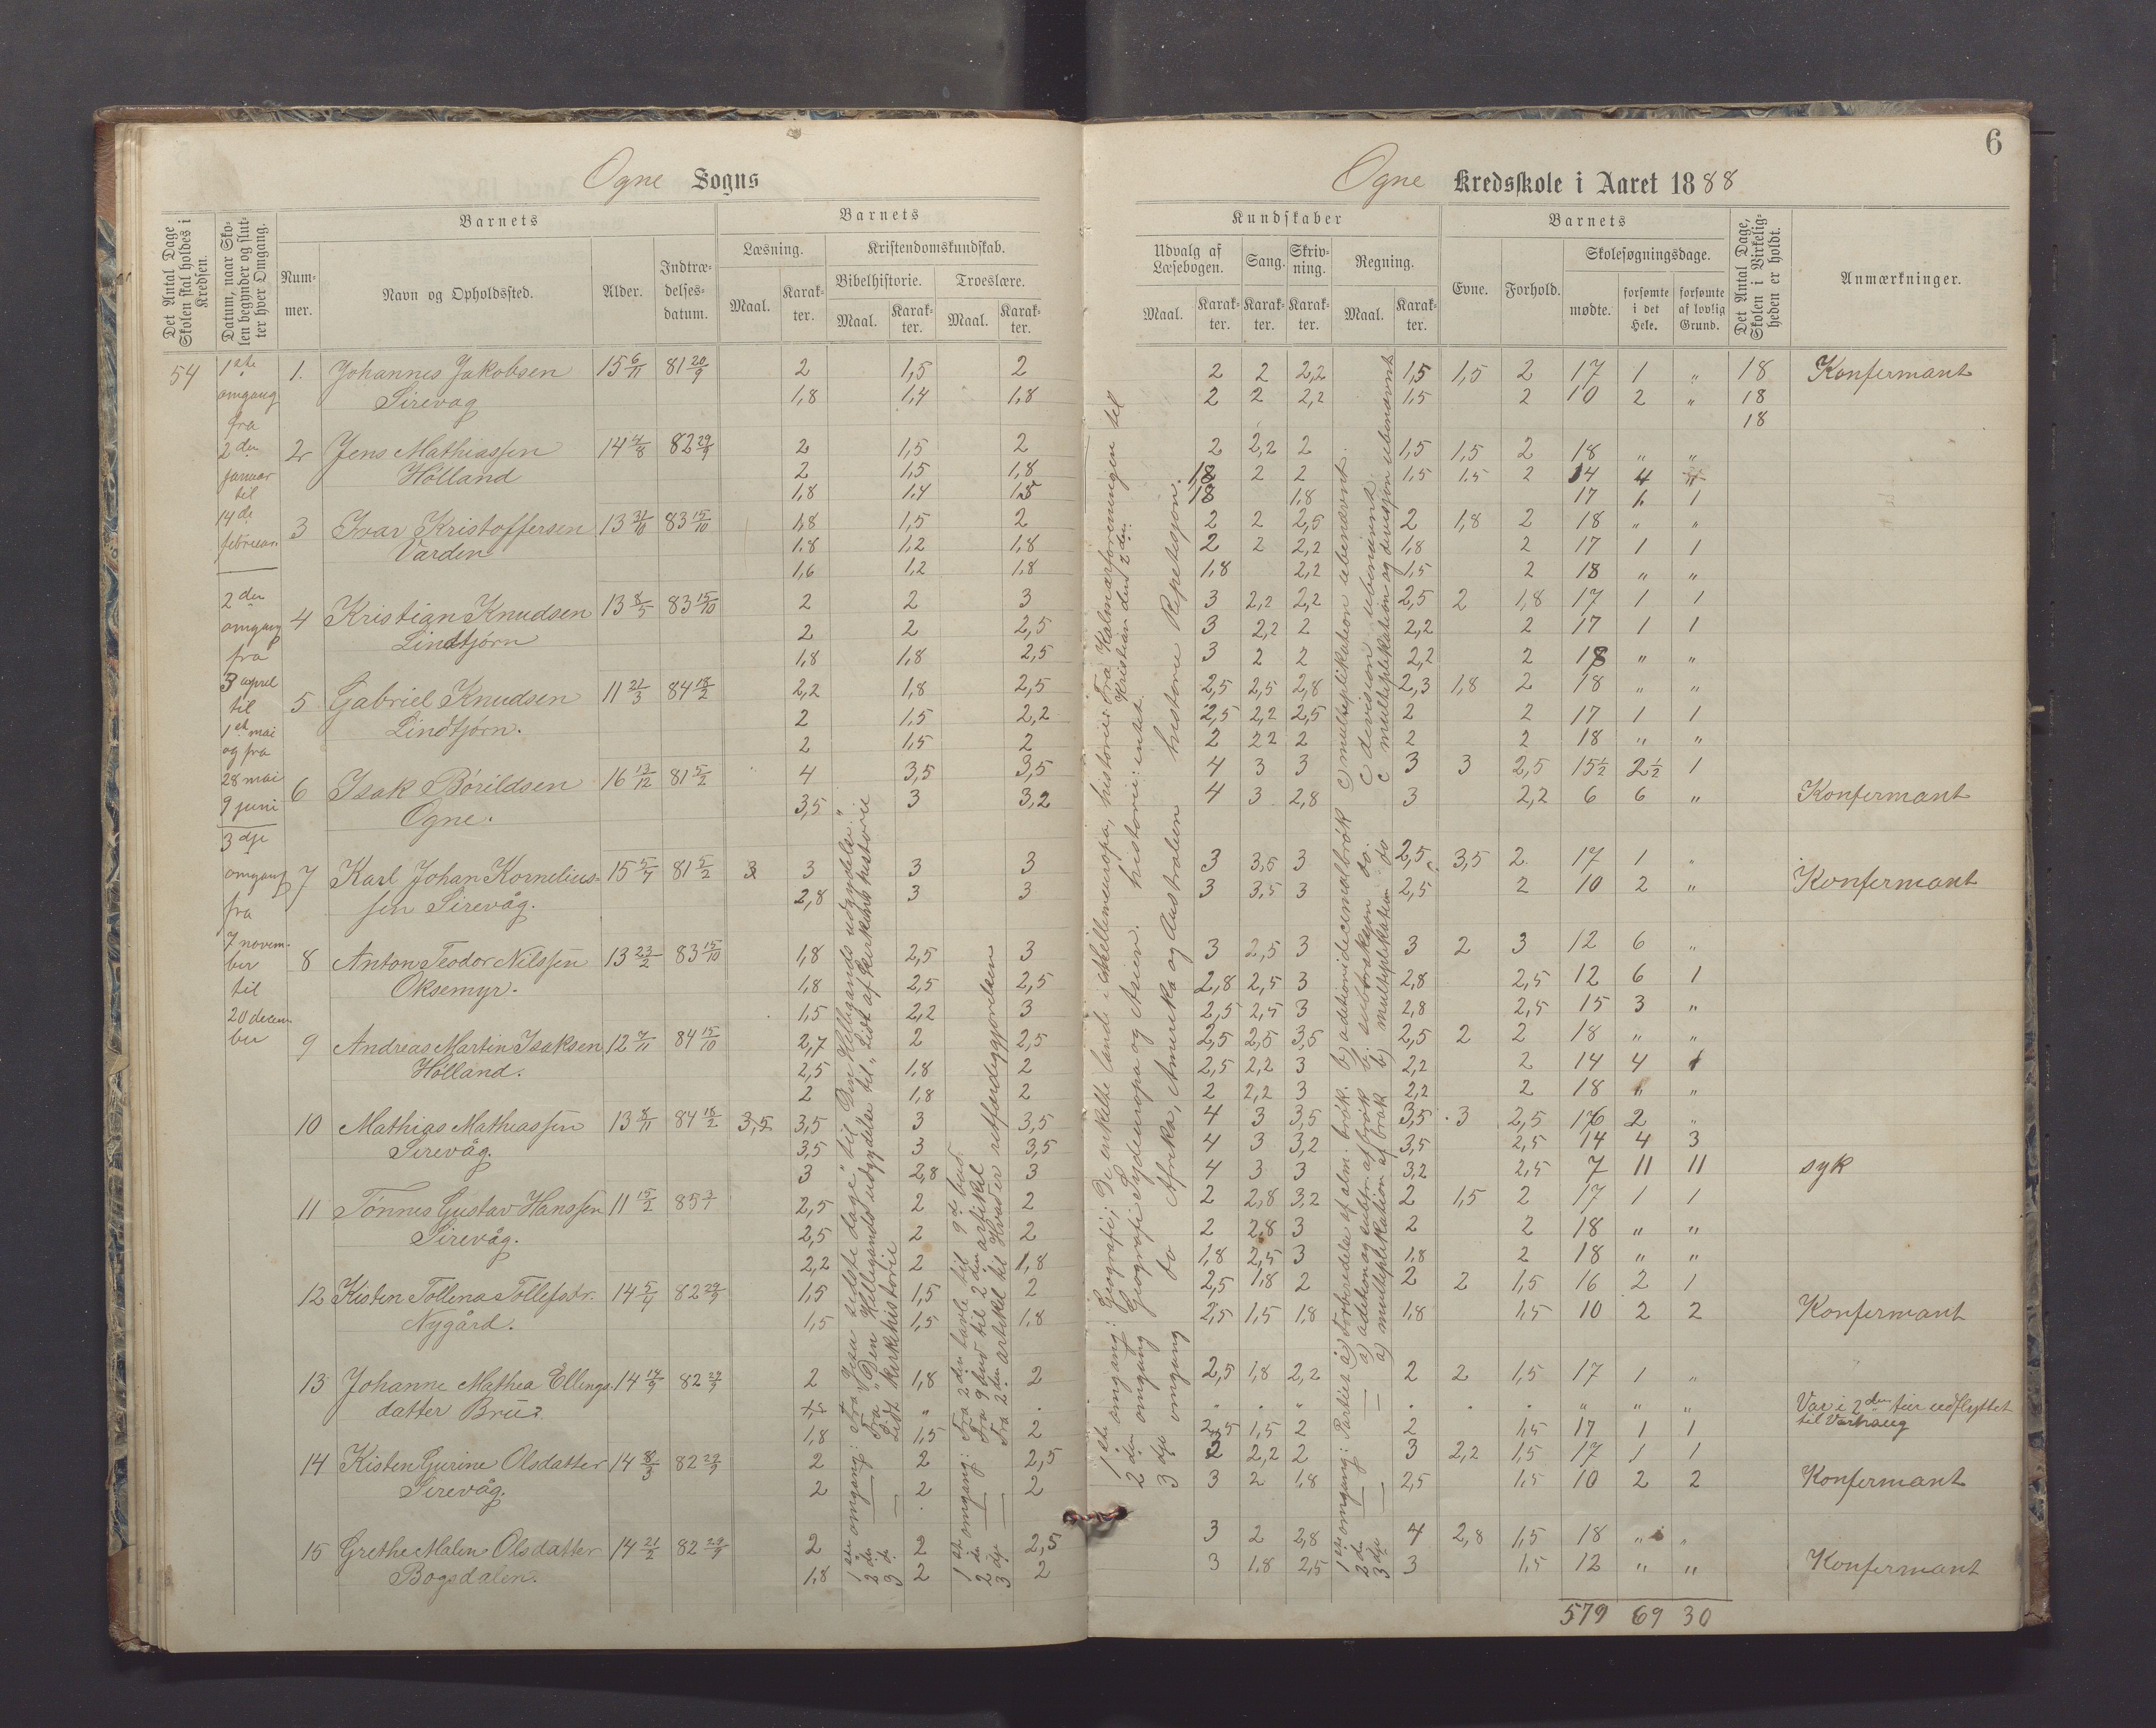 Ogne Sogns
Det Antal Dage Skolen skal holdes i Kredsen.
Datum, naar Skolen begynder og slutter hver Omgang.
Barnets
Nummer.
Navn og Opholdssted.
Alder.
Indtrædelsesdatum.
Barnets
Læsning.
Maal.
Karakter.
Kristendomskundskab.
Bibelhistorie.
Maal.
Karakter.
Troeslære.
Maal.
Karakter.
54
1ste
omgang
fra
2den
januar
til
14de
februar.
2den
omgang
fra
3 aprel
til
1st mai
og fra
28 mai
9 juni
3dje
omgang
fra
7 novem-
ber
til
20 decem-
ber
1. Johannes Jakobsen 15 6/11 81 20/9 2 1,5 2
Sirevag 1,8 1,4 1,8
2 Jens Mathiassen 14 4/8 82 29/9 2 1,5 2
Hølland 2 1,5 1,8
1,8 1,4 1,8
3 Ivar Kristoffersen 13 31/10 83 15/10 1,8 1,5 2
Varden 1,8 1,2 1,8
1,6 1,2 1,8
4 Kristian Knudsen 13 8/5 83 15/10 2 2 3
Lindtjørn 2 2 2,5
1,8 1,8 2,5
5 Gabriel Knudsen 11 21/3 84 18/2 2,2 1,8 2,5
Lindtjørn. 2 1,5 2,2
2 1,5 2
6 Isak Bórildsen 16 13/12 81 5/2 4 3,5 3,5
Ogne. 3,5 3 3,2
7 Karl Johan Kornelius- 15 5/7 81 5/2 3 3 3 3
sen Sirevåg. 2,8 3 3
8 Anton Teodor Nilssen 13 23/2 83 15/10 1,8 2,5 3
Oksemyr. 1,8 2,5 2,5
1,5 2,2 3
9 Andreas Martin Isaksen 12 7/11 84 15/10 2,7 2 2,5
Hølland. 2,5 1,8 2
2 1,8 2
10 Mathias Mathiassen 13 8/11 84 18/2 3,5 3,5 3 3,5
Sirevåg. 3,5 3 3,5
3 2,8 3
11 Tønnes Gustav Hanssen 11 15/2 85 3/7 2,5 2 2
Sirevåg. 2,5 2 2
2,2 2 1,8
12 Kisten Tollena Tollefsdr. 14 5/4 82 29/9 1,5 1,5 2
Nygård. 1,5 1,5 1,8
13 Johanne Mathea Ellings- 14 14/9 82 29/9 2 1,8 2
datter Bru. „
1,8 1,5 2
14 Kisten Gurine Olsdatter 14 8/3 82 29/9 2 2 2,5
Sirevåg. 2 2 2
15 Grethe Malen Olsdatter 14 21/2 82 29/9 2 2 2,5
Bogsdalen. 1,8 2 2
1ste omgang: Fra „Jesu sidste dage“ til „Den Helligaands udgydelse“
2de — Fra „Den Helligaands udgydelse til „Lidt af Kerkens historie
3d. — Lidt kerkehistorie
1st omgang: Fra 2den tavle til 9de bud.
2de — Fra 9 bud til 2den artikel
3dje — Fra 2den artikel til Hvad er retfærdiggjørelsen
Ogne Kredsskole i Aaret 1888
6
Kundskaber
Udvalg af Læsebogen.
Maal.
Karakter.
Sang.
Karakter.
Skrivning.
Karakter.
Regning.
Maal.
Karakter.
Barnets
Evne.
Forhold.
Skolesøgningsdage.
mødte.
forsømte i det Hele.
forsømte af lovlig Grund.
Det Antal Dage, Skolen i Virkeligheden er holdt.
Anmærkninger.
2 2 2,2 1,5 1,5 2 17 1 „ 18 Konfermant
2 2 2,2 1,5 2 10 2 „ 18
18
2 2,2 2 1,5 1,5 2 18 „ „
1,8 2 2 1,5 1,5 2 14 4
1,8 1,8 17 1 1
2 2 2,5 2 1,8 2 18 „ „
2 2 2,2 1,8 2 17 1 1
1,8 2,2 1,5 2 18 „ „
3 2,2 2,2 2,5 2 1,8 17 1 1
3 2,2 2 2,2 2 17 1 1
3 2 2 2,2 2 18 „ „
2,5 2,5 2,8 2,3 1,8 2 18 „ „
2,5 2,2 2,5 2 2 17 1 1
2 2,2 2 2 2 18 „ „
4 3 3 3 3 2,5 15½ 2½ 1
4 3 2,8 3 2,2 6 6 „ Konfermant
3 3,5 3 2,5 3,5 2 17 1 „
3 3,5 3 2,5 2 10 2 „ Konfermant
3 2,5 3 3 2 3 12 6 „
2,8 2,5 3 2,8 2,5 12 6 1
2,5 2,5 3 2,8 2,5 15 3 „
2,5 2,5 3,5 2,5 2 2 18 „ „
2,5 2,2 3 2,2 2 14 4 1
2 2,2 3 2,2 2 18 „ „
4 3 3,5 3,5 3 2,5 16 2 „
4 3 3,2 3,5 2,5 14 4 3
4 3 3 3,2 2,5 7 11 11 syk
2 2,8 3,2 2 1,5 2 17 1 1
2 2,8 3 2 2 18 „ „
1,8 2,5 3 1,8 2 18 „ „
2,5 1,8 2 2 2 1,5 16 2 1
2,5 1,5 1,8 1,8 1,5 10 2 2 Konfermant
2,5 1,8 2,2 2 2 1,5 17 1 „
„ „ „ Var i 2den tur udflyttet
til Varhaug
2,5 1,5 2 2 1,5 17 1 1
2 2,2 2 3 2,2 1,5 17 1 1
3 2 1,8 2,5 1,5 10 2 2 Konfermant
3 2 2,8 4 2,8 1,5 18 „ „
3 1,8 2,5 3 1,5 12 „ „ Konfermant
579 69 30
1ste omgang: Geografi; De enkelte lande i Mellemeuropa, historie: Fra Kalmarforeningen til
Kristian den 2den.
2den omgang Geografi Sydeuropa og Asien. historie: intet.
3dje omgang do Afrika, Amerika og Australien historie Repetisjon.
1ste omgang: Partiea a) Forberedelse af alm. brøk. b) adition i decimalbrøk c) multiplikation ubenævnt.
2de — a) adition og subtr. af brøk b) subtraksjon do. c devision ubenævnt
3dje — a) multiplikation af brøk b) multiplikation do c multiplikation og devisjon ubenævnt